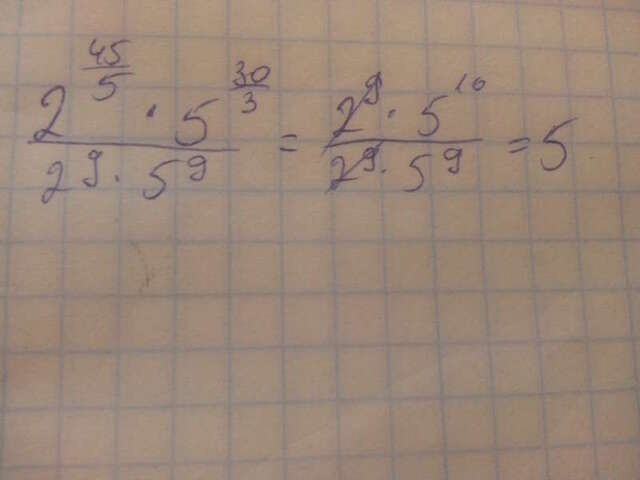 \frac{2^{\frac{45}{5}} \cdot 5^{\frac{30}{3}}}{2^9 \cdot 5^9} = \frac{2^9 \cdot 5^{10}}{2^9 \cdot 5^9} = 5